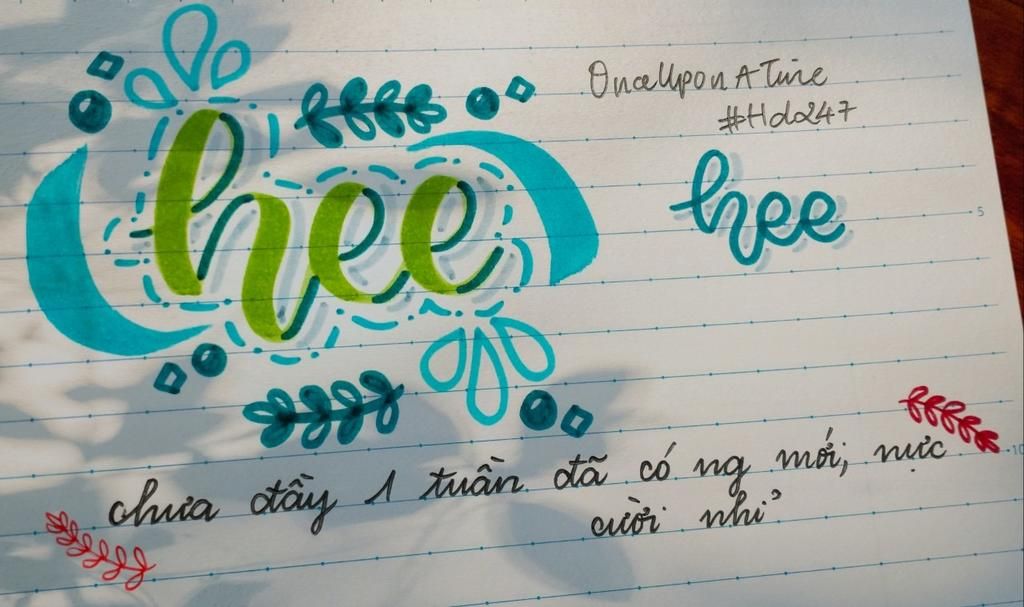 hee
OnceUponATime
#Hdo247
hee
5
10
chưa đầy 1 tuần đã có ng mới, nực
cười nhỉ